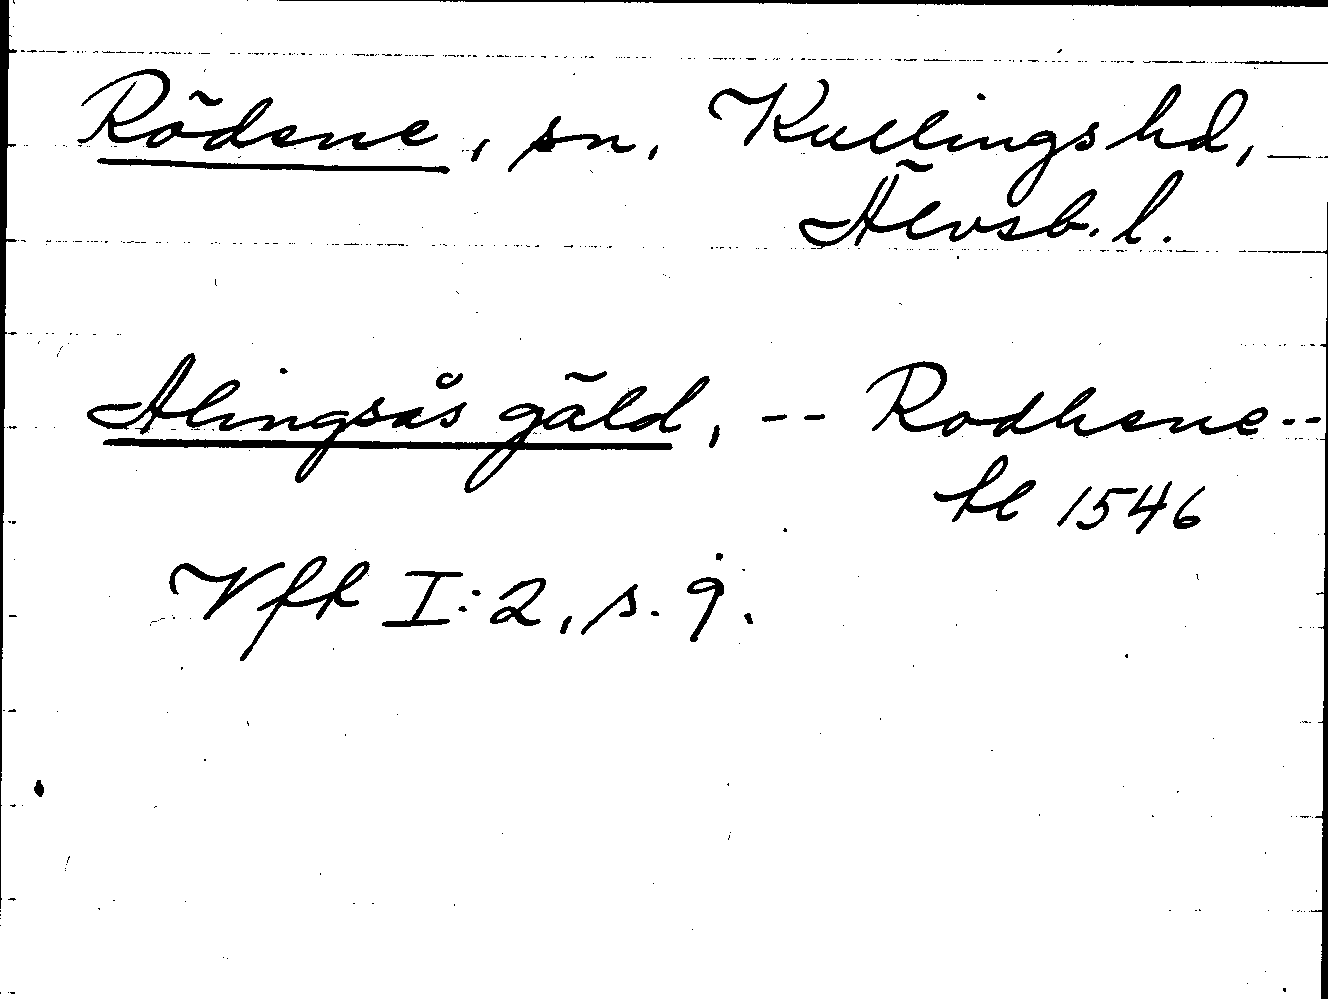 Rödene, sn, Kullings hd,
Älvsb. l.
Alingsås gäld, -- Rodhene --
hl 1546
Vff I:2, s. 9.